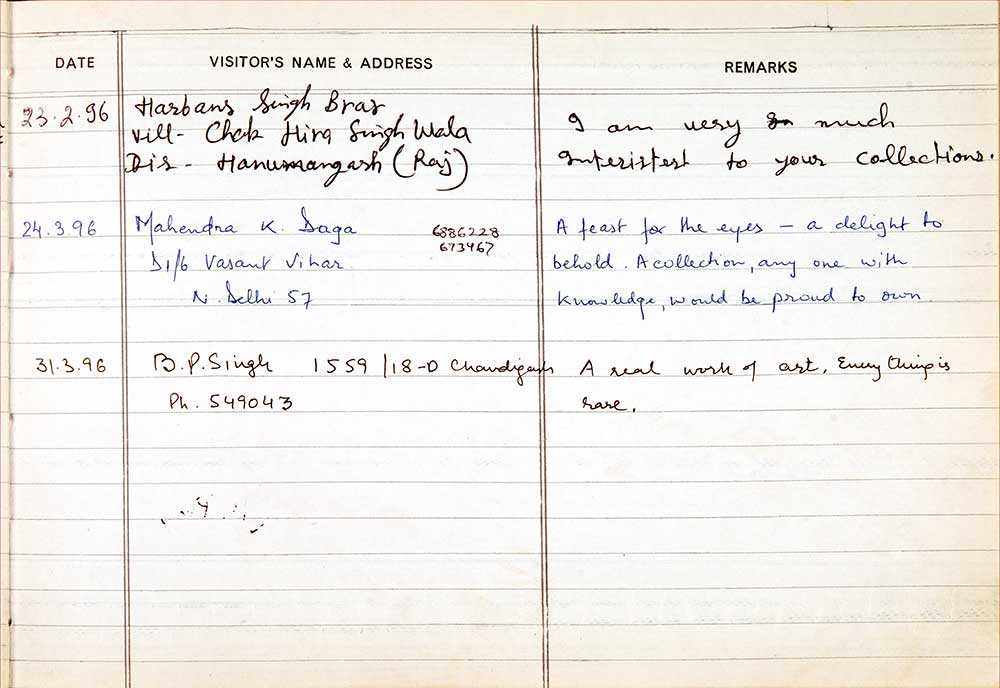 DATE VISITOR'S NAME & ADDRESS REMARKS
23.2.96 Harbans Singh Brar I am very much
Vill- Chak Hira Singh Wala interistest to your collections.
Dis - Hanumangarh (Raj)
24.3.96 Mahendra K. Daga 6886228 A feast for the eyes – a delight to
673467
D1/6 Vasant Vihar behold. A collection, any one with
N. Delhi 57 knowledge, would be proud to own
31.3.96 B.P. Singh 1559/18-D Chandigarh A real work of art, Every thing is
Ph. 549043 rare.